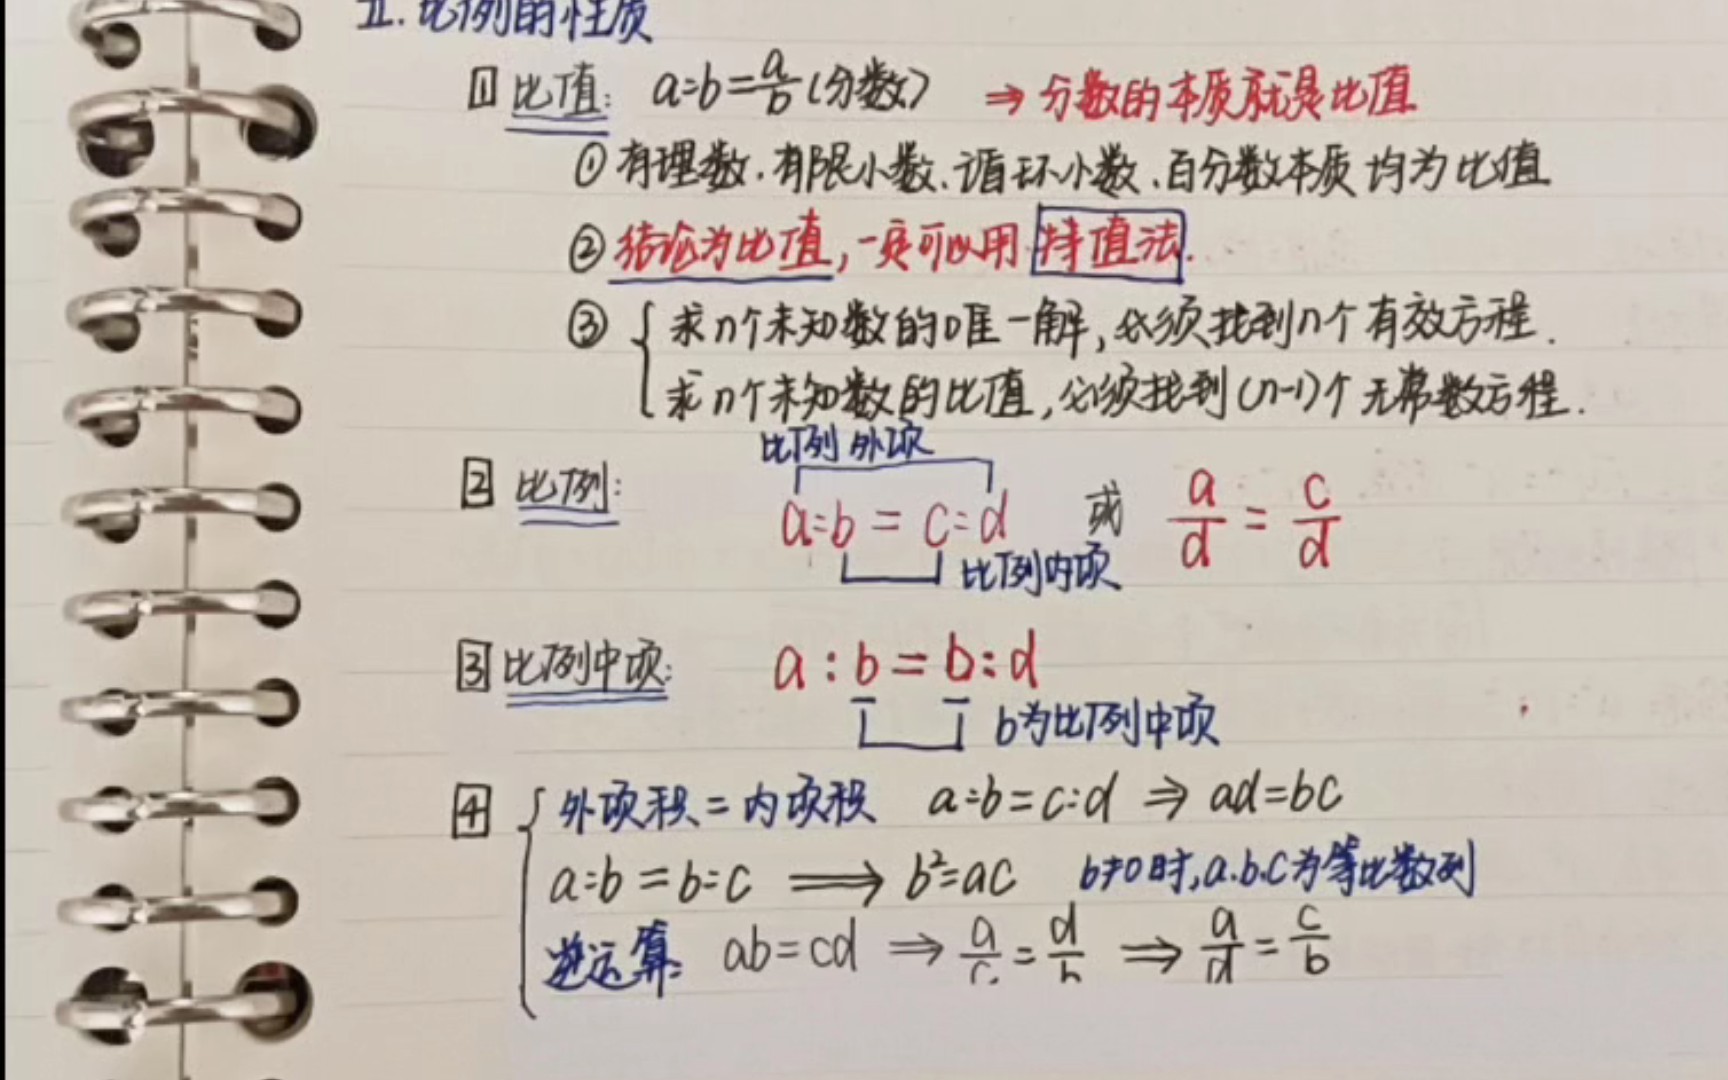 五.比例的性质
1 比值: a:b=a/b(分数) ⇒ 分数的本质就是比值
① 有理数.有限小数、循环小数、百分数本质均为比值
② 结论为比值,一定可以用特值法.
③ { 求n个未知数的唯一解,必须找到n个有效方程.
求n个未知数的比值,必须找到(n-1)个无常数方程.
比例外项
2 比例: a:b = c:d 或 a/d = c/d
比例内项
3 比例中项: a:b=b:d
b为比例中项
4 { 外项积=内项积 a:b=c:d ⇒ ad=bc
a:b=b:c ⟹ b²=ac b≠0时,a.b.c为等比数列
逆运算: ab=cd ⇒ a/c=d/b ⇒ a/d=c/b